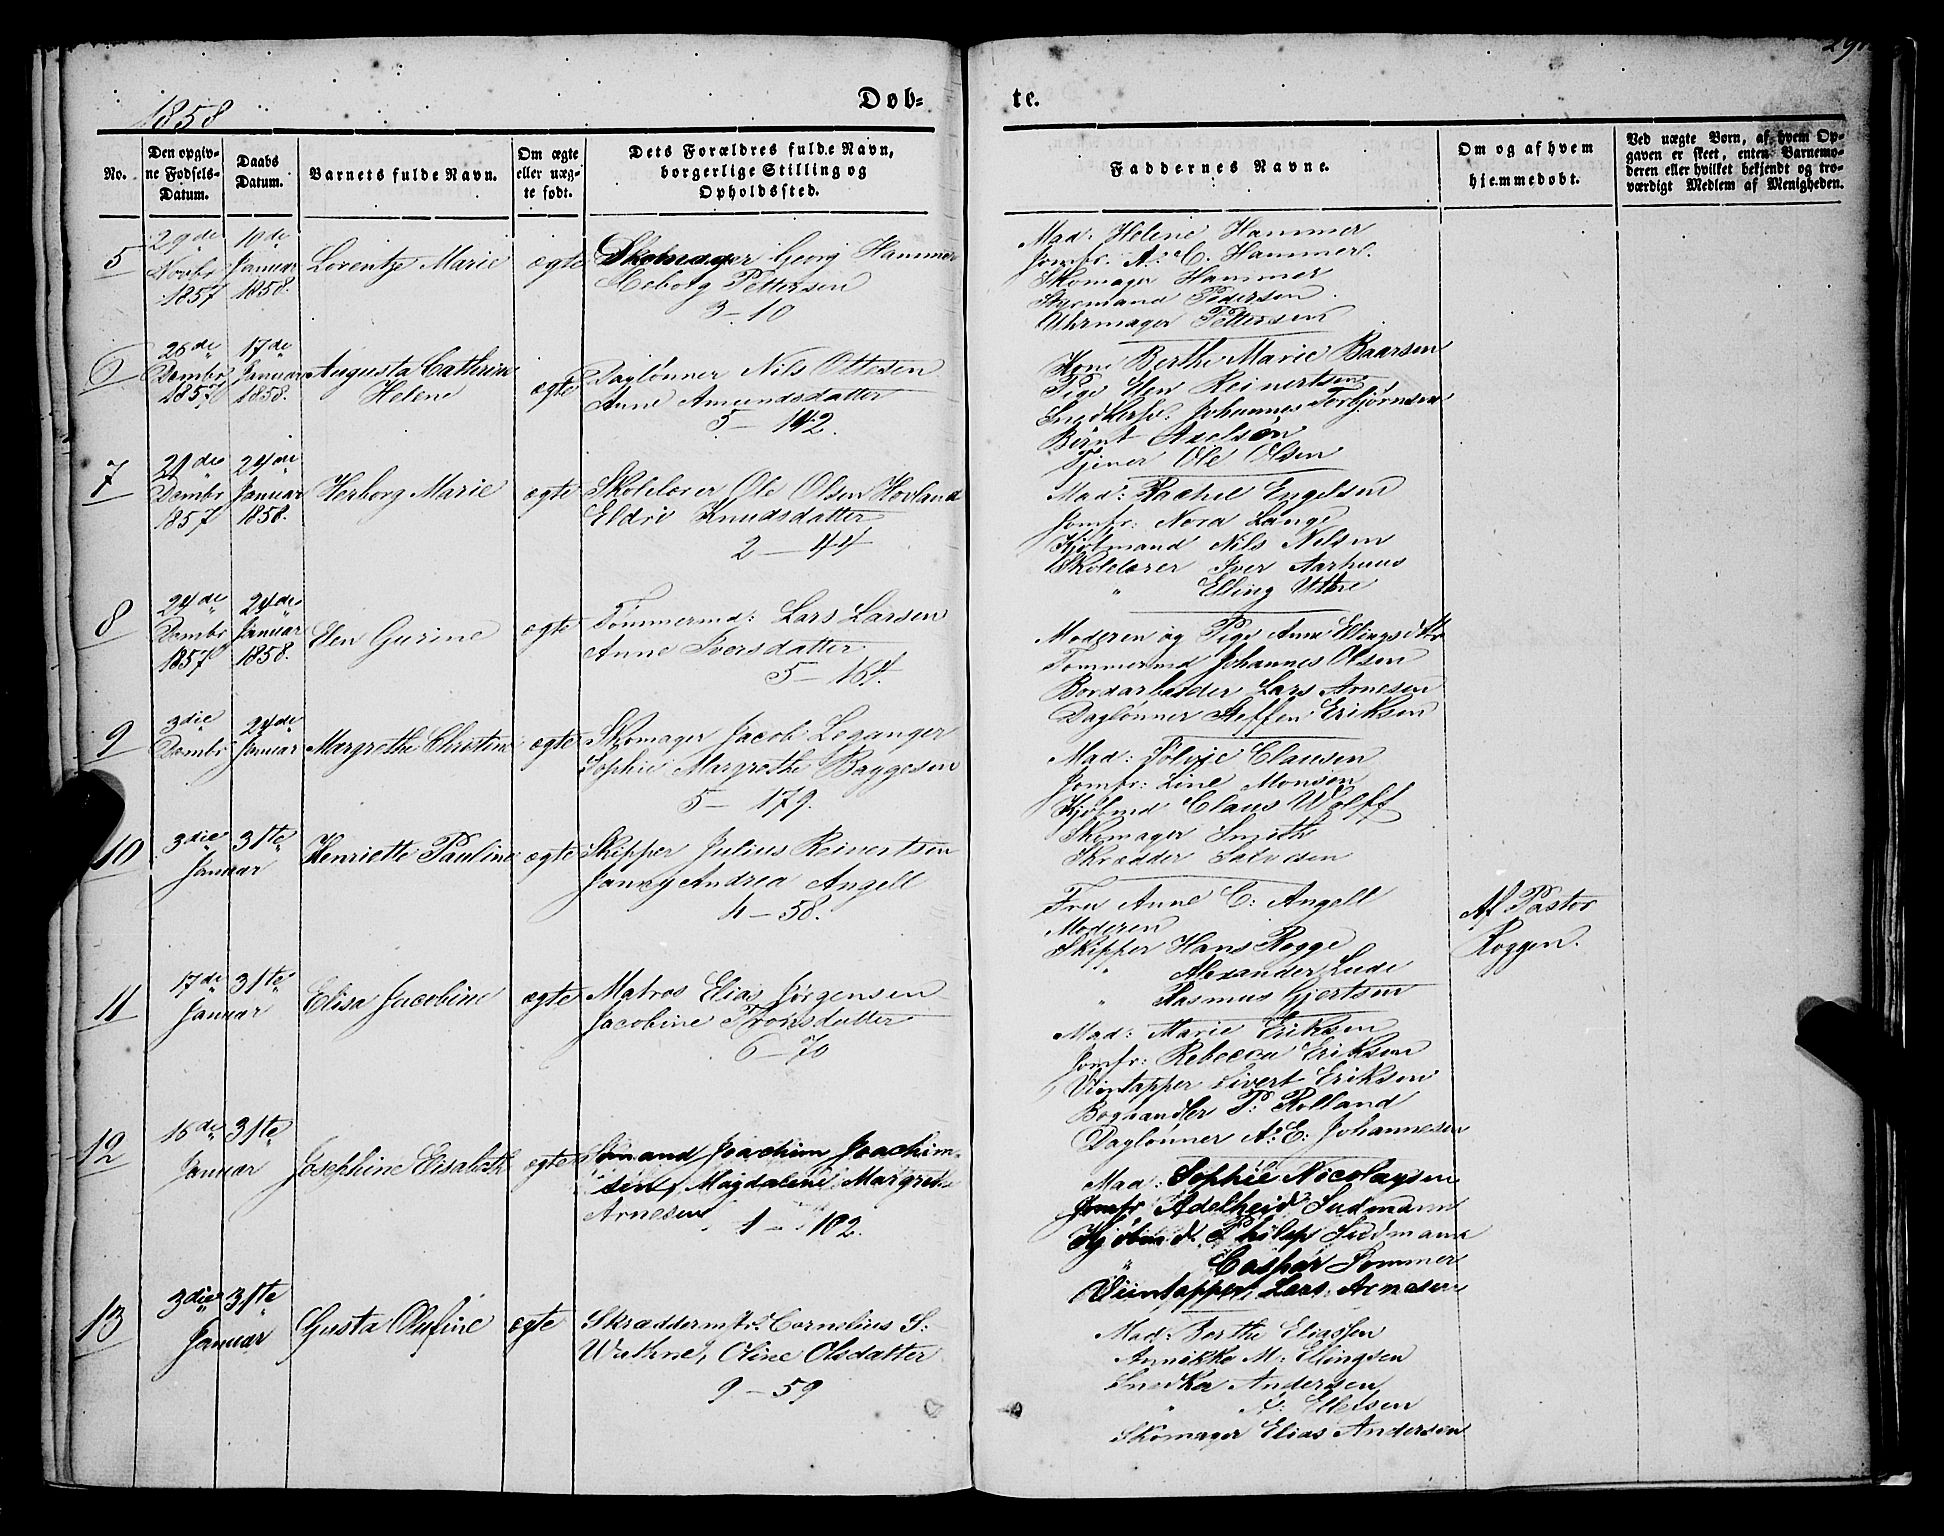 1858
Døb-
te.
No.
Den opgiv-
ne Fødsels-
Datum.
Daabs
Datum.
Barnets fulde Navn.
Om ægte
eller uæg-
te født.
Dets Forældres fulde Navn,
borgerlige Stilling og
Opholdssted.
Faddernes Navne.
Om og af hvem
hiemmedøbt.
Ved uægte Born, af hvem Op-
gaven er skeet, enten Barnemo-
deren eller hvilket bekjendt og tro-
værdigt Medlem af Menigheden.
5
29de
Novbr
1857
10de
Januar
1858.
Lorentze Marie
ægte
Skomager Georg Hammer
Pettersen
3-10
Mad: Helene Hammer
Jomfr: A. C. Hammer.
Skomager Hammer
Styrmand Pedersen
Uhrmager Pettersen
6
26de
Dcmbr
1857
17de
Januar
1858.
Augusta Cathrine
Helene
ægte
Daglønner Nils Ottesen
Anne Amundsdatter
5-142.
Kone Berthe Marie Baarsen
Pige Reinertsen
Johannes Torbjørnsen
Bernt Axelsen
Tjener Ole Olsen
7
21de
Dcmbr
1857
24de
Januar
1858.
Herborg Marie
ægte
Skolelærer Ole Olsen Hovland
Eldri Knudsdatter
2-44
Mad: Rachel Engelsen
Jomfr: Nora Lange
Kjøbmand Nils Nilsen
Skolelærer Iver Aarhuus
" Elling Uthre
8
24de
Dcmbr
1857
24de
Januar
1858.
Elen Gurine
ægte
Tømmermd: Lars Larsen
Anne Iversdatter
5-164.
Moderen og Pige Anne Ellingsdtr
Tømmermd Johannes Olsen
Bordarbeider Lars Arnesen
Daglønner Steffen Eriksen
9
3die
Dcmbr
24de
Januar
Margrethe Christine
ægte
Skomager Jacob Leganger
Sophie Margrethe Baggesen
5-179.
Mad: Sølvie Clausen
Jomfr: Line Monsen
Kjøbmd Claus Wolff
Skomager Smith
Skrædder
10
3die 31te
Januar
Henriette Pauline
ægte
Skipper Julius Reinertsen
Janny Andrea Angell
4-58.
Fru Anne C: Angell
Moderen
Skipper Hans Rogge
" Alexander Lude
" Rasmus Gjertsen
Af Pastor
Roggen.
11
17de 31te
Januar
Elisa Jacobine
ægte
Matros Elias Jørgensen
Jacobine Tronsdatter
6-70
Mad: Marie Eriksen
Jomfr: Rebecca Eriksen
Viintapper Sivert Eriksen
Boghandler P: Rolland
Daglønner A: E: Johannesen
12
16de 31te
Januar
Josephine Elisabeth
ægte
Sømand Joachim Joachim-
sen, Magdalene Margrethe
Arnesen
1-102.
Mad: Sophie Nicolaysen
Jomfr Adelheid Sudmann
Kjøbmd. Philip Sudmann
" Caspar Sommer
Viintapper Lars Arnesen
13
3die 31te
Januar
Gusta Olufine
ægte
Skræddermstr: Cornelius S:
Wathne, Oline Olsdatter
9-59
Mad: Berthe Eliassen
Annikke M: Ellingsen
Snedker Andersen
" Ellefsen
Skomager Elias Andersen